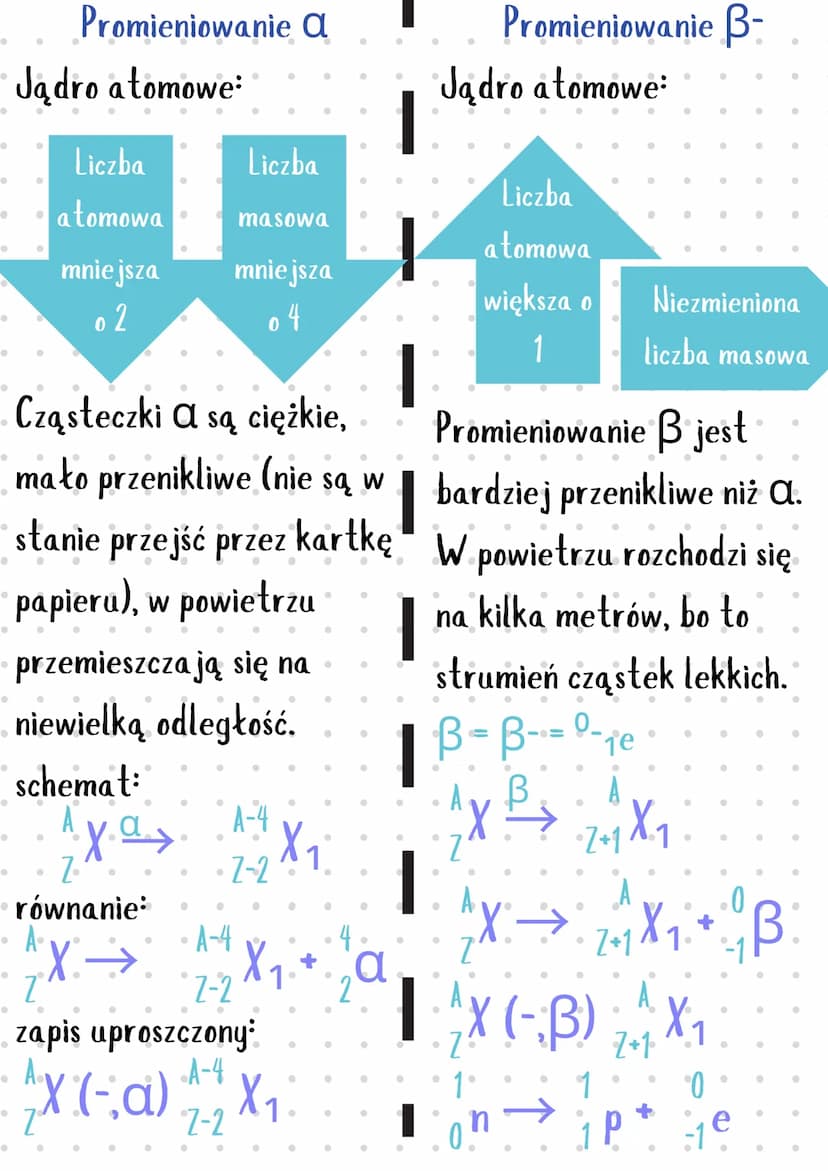 Promieniowanie α
Jądro atomowe:
Liczba
atomowa
mniejsza
o 2
Liczba
masowa
mniejsza
o 4
Cząsteczki α są ciężkie,
mało przenikliwe (nie są w
stanie przejść przez kartkę
papieru), w powietrzu
przemieszczają się na
niewielką odległość.
schemat:
ᴬ_Z X —α→ ᴬ⁻⁴_Z-2 X₁
równanie:
ᴬ_Z X → ᴬ⁻⁴_Z-2 X₁ + ⁴₂α
zapis uproszczony:
ᴬ_Z X (-,α) ᴬ⁻⁴_Z-2 X₁
Promieniowanie β-
Jądro atomowe:
Liczba
atomowa
większa o
1
Niezmieniona
liczba masowa
Promieniowanie β jest
bardziej przenikliwe niż α.
W powietrzu rozchodzi się
na kilka metrów, bo to
strumień cząstek lekkich.
β = β- = ⁰₋₁e
ᴬ_Z X —β→ ᴬ_Z+1 X₁
ᴬ_Z X → ᴬ_Z+1 X₁ + ⁰₋₁β
ᴬ_Z X (-,β) ᴬ_Z+1 X₁
¹₀n → ¹₁p + ⁰₋₁e